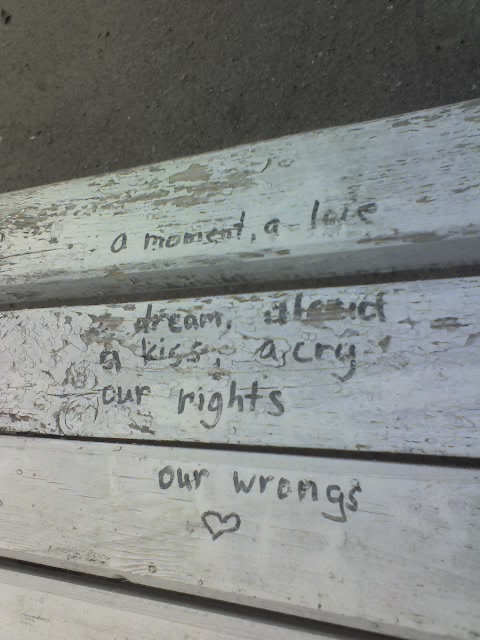 a moment, a love
a dream, aloud
a kiss, a cry
our rights
our wrongs